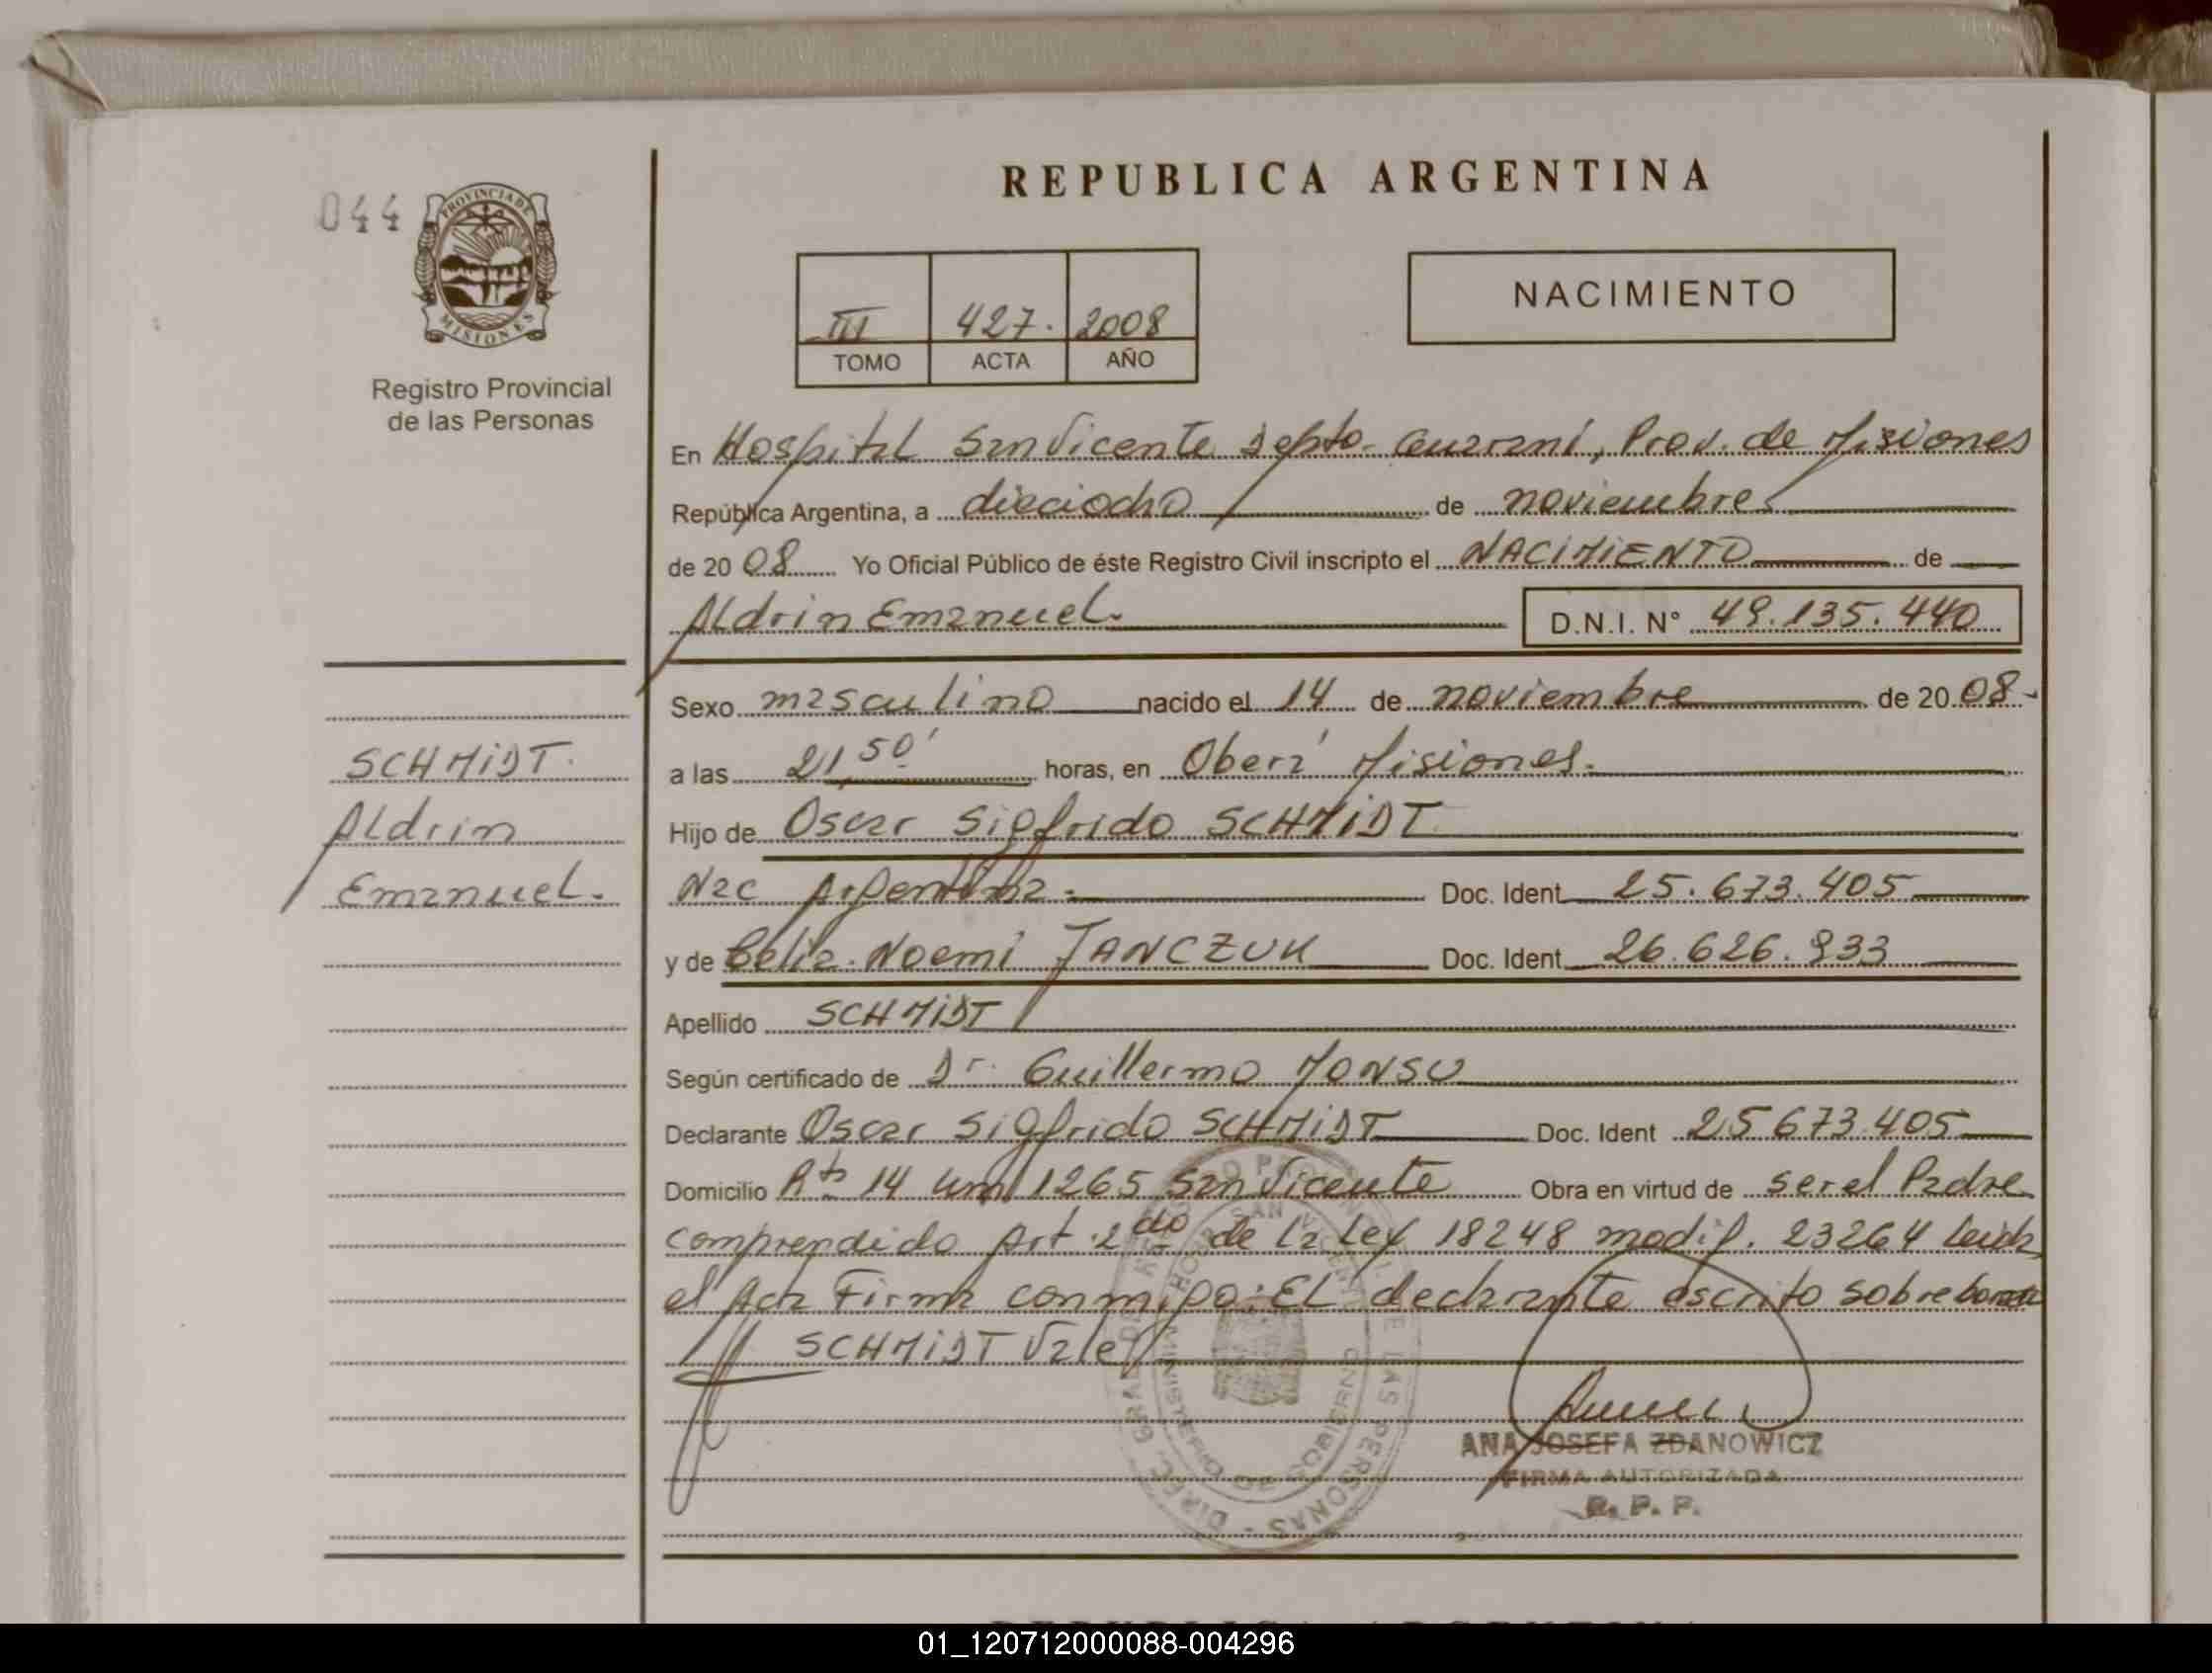 REPUBLICA ARGENTINA
044
PROVINCIA DE
MISIONES
Registro Provincial
de las Personas
III 427. 2008
TOMO ACTA AÑO
NACIMIENTO
En Hospital San Vicente Depto. Guaraní, Prov. de Misiones
República Argentina, a dieciocho de noviembre
de 20 08 Yo Oficial Público de éste Registro Civil inscripto el NACIMIENTO de
Aldrin Emanuel. D.N.I. N° 49.135.440
Sexo masculino nacido el 14 de noviembre de 20 08-
a las 21,50' horas, en Oberá Misiones.
Hijo de Oscar Sigfrido SCHMIDT
Nac Argentina Doc. Ident 25.673.405
y de Celia Noemi JANCZUK Doc. Ident 26.626.933
Apellido SCHMIDT
Según certificado de Dr. Guillermo MONSU
Declarante Oscar Sigfrido SCHMIDT Doc. Ident 25673.405
Domicilio Rta 14 km 1265 San Vicente Obra en virtud de ser el Padre
comprendido Art. 2do de la Ley 18248 modif. 23264 Leida
el Acta Firma conmigo: EL declarante escrito sobre borrado
SCHMIDT Vale
SCHMIDT.
Aldrin
Emanuel.
ANA JOSEFA ZDANOWICZ
FIRMA AUTORIZADA
R. P. P.
MINISTERIO DE GOBIERNO
01_120712000088-004296